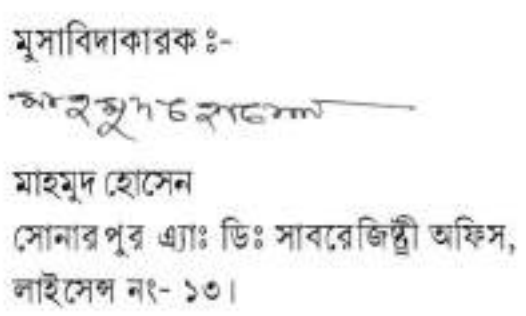 মুসাবিদাকারক ঃ-
মাহমুদ হোসেন
মাহমুদ হোসেন
সোনারপুর এ্যাঃ ডিঃ সাবরেজিষ্ট্রী অফিস,
লাইসেন্স নং- ১৩।